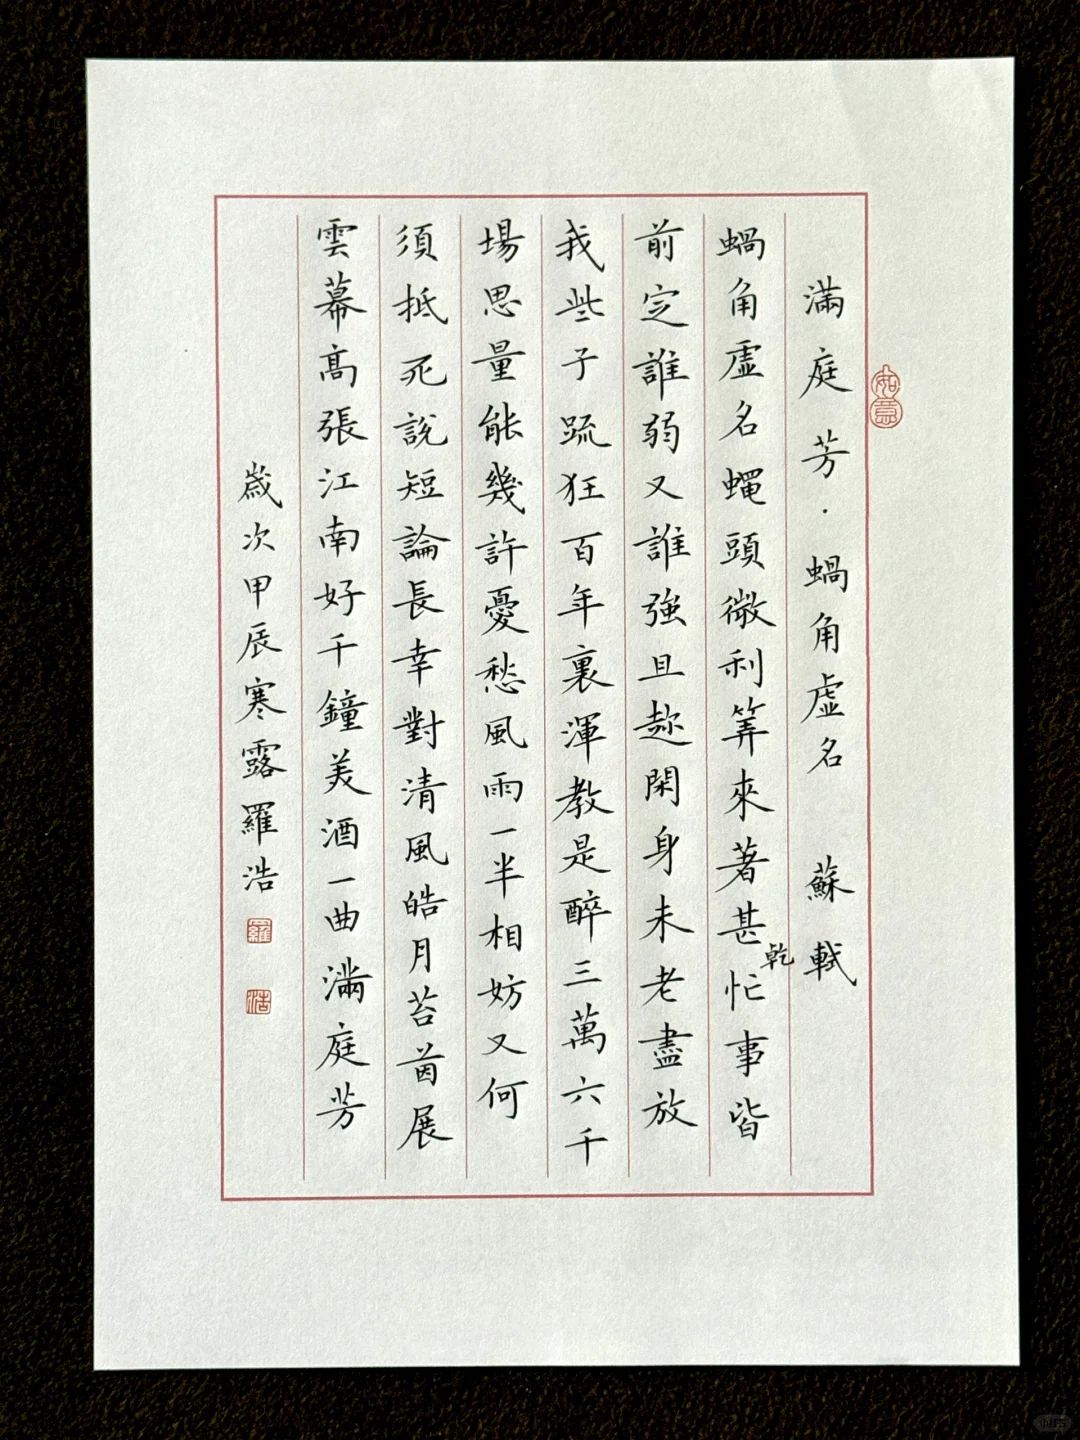 滿庭芳·蝸角虛名 蘇軾
蝸角虛名蠅頭微利筭來著甚乾忙事皆
前定誰弱又誰強且趂閑身未老盡放
我些子疏狂百年裏渾教是醉三萬六千
場思量能幾許憂愁風雨一半相妨又何
須抵死說短論長幸對清風皓月苔茵展
雲幕高張江南好千鐘美酒一曲滿庭芳
歲次甲辰寒露羅浩
羅
浩
如意